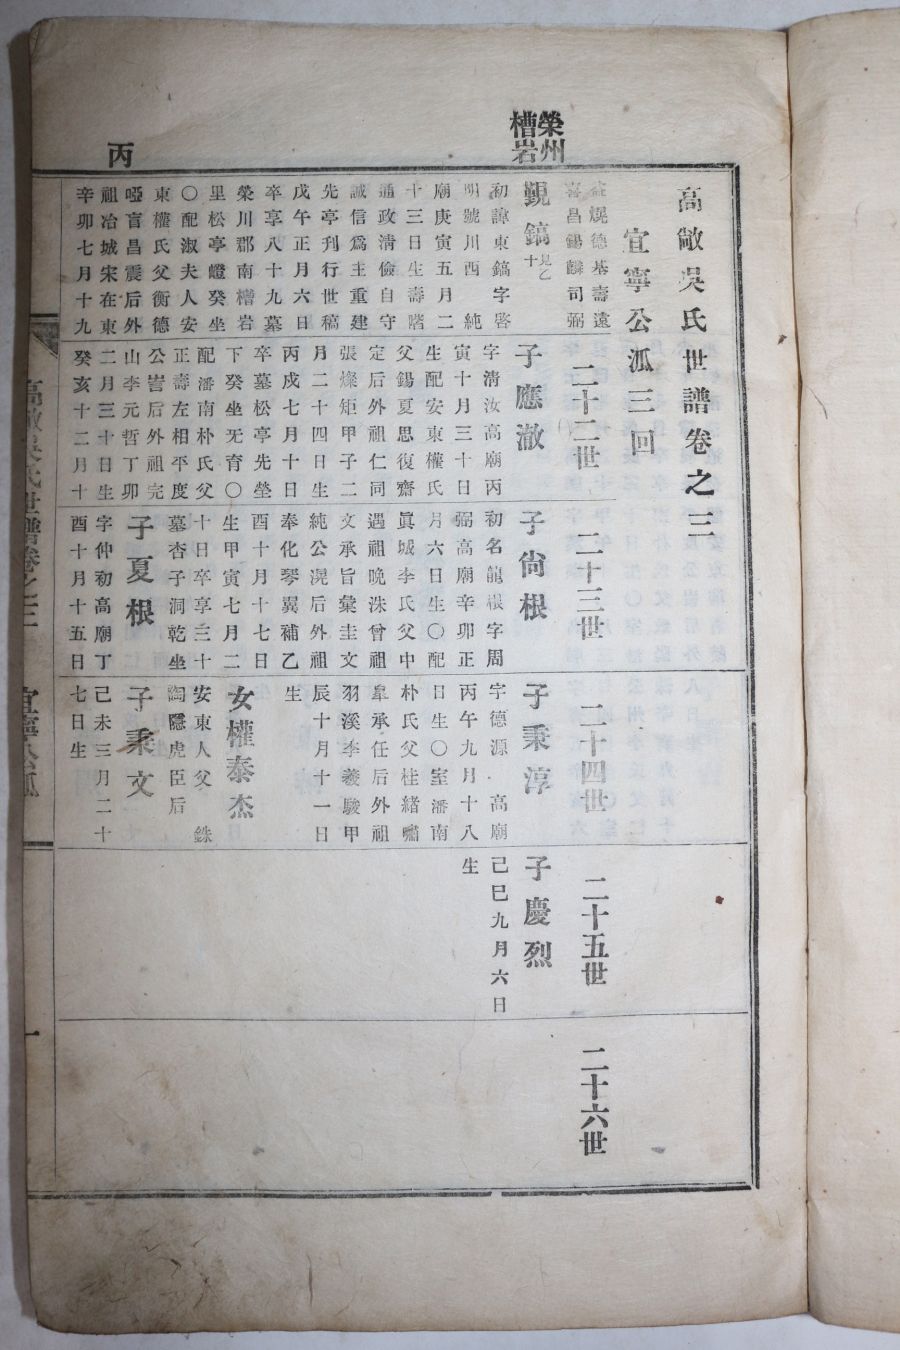 榮州
槽岩
丙
高敞吳氏世譜卷之三
宜寧公派三回
二十二世
二十三世
二十四世
二十五世
二十六世
燒德基壽遠
喜昌錫麟司弼
觀鎬
見乙十
初諱東鎬字啓
明號川西純
廟庚寅五月二
十三日生壽階
通政淸儉自守
誠信爲主重建
先亭刋行世稿
戊午正月六日
卒享八十九墓
榮川郡南槽岩
里松亭嶝癸坐
〇配淑夫人安
東權氏父衡德
啞盲昌震后外
祖冶城宋在東
辛卯七月十九
子應澈
字淸汝高廟丙
寅十月三十日
生配安東權氏
父錫夏思復齋
定后外祖仁同
張燦矩甲子二
月二十四日生
丙戌七月十日
卒墓松亭先塋
下癸坐旡育〇
配潘南朴氏父
正壽左相平度
公訔后外祖完
山李元哲丁卯
二月三十日生
癸亥十二月十
子尙根
初名龍根字周
弼高廟辛卯正
月六日生〇配
眞城李氏父中
遇祖晩洙曾祖
文承旨彙圭文
純公滉后外祖
奉化琴翼補乙
酉十月十七日
生甲寅七月二
十日卒享三十
墓杏子洞乾坐
子夏根
字仲初高廟丁
酉十月十五日
子秉淳
字德源高廟
丙午九月十八
日生〇室潘南
朴氏父桂緖嘯
皐承任后外祖
羽溪李羲駿甲
辰十月十一日
生
女權泰杰
安東人父 銖
陶隱虎臣后
子秉文
己未三月二十
七日生
子慶烈
己巳九月六日
生
高敞吳氏世譜卷之三
宜寧公派
一